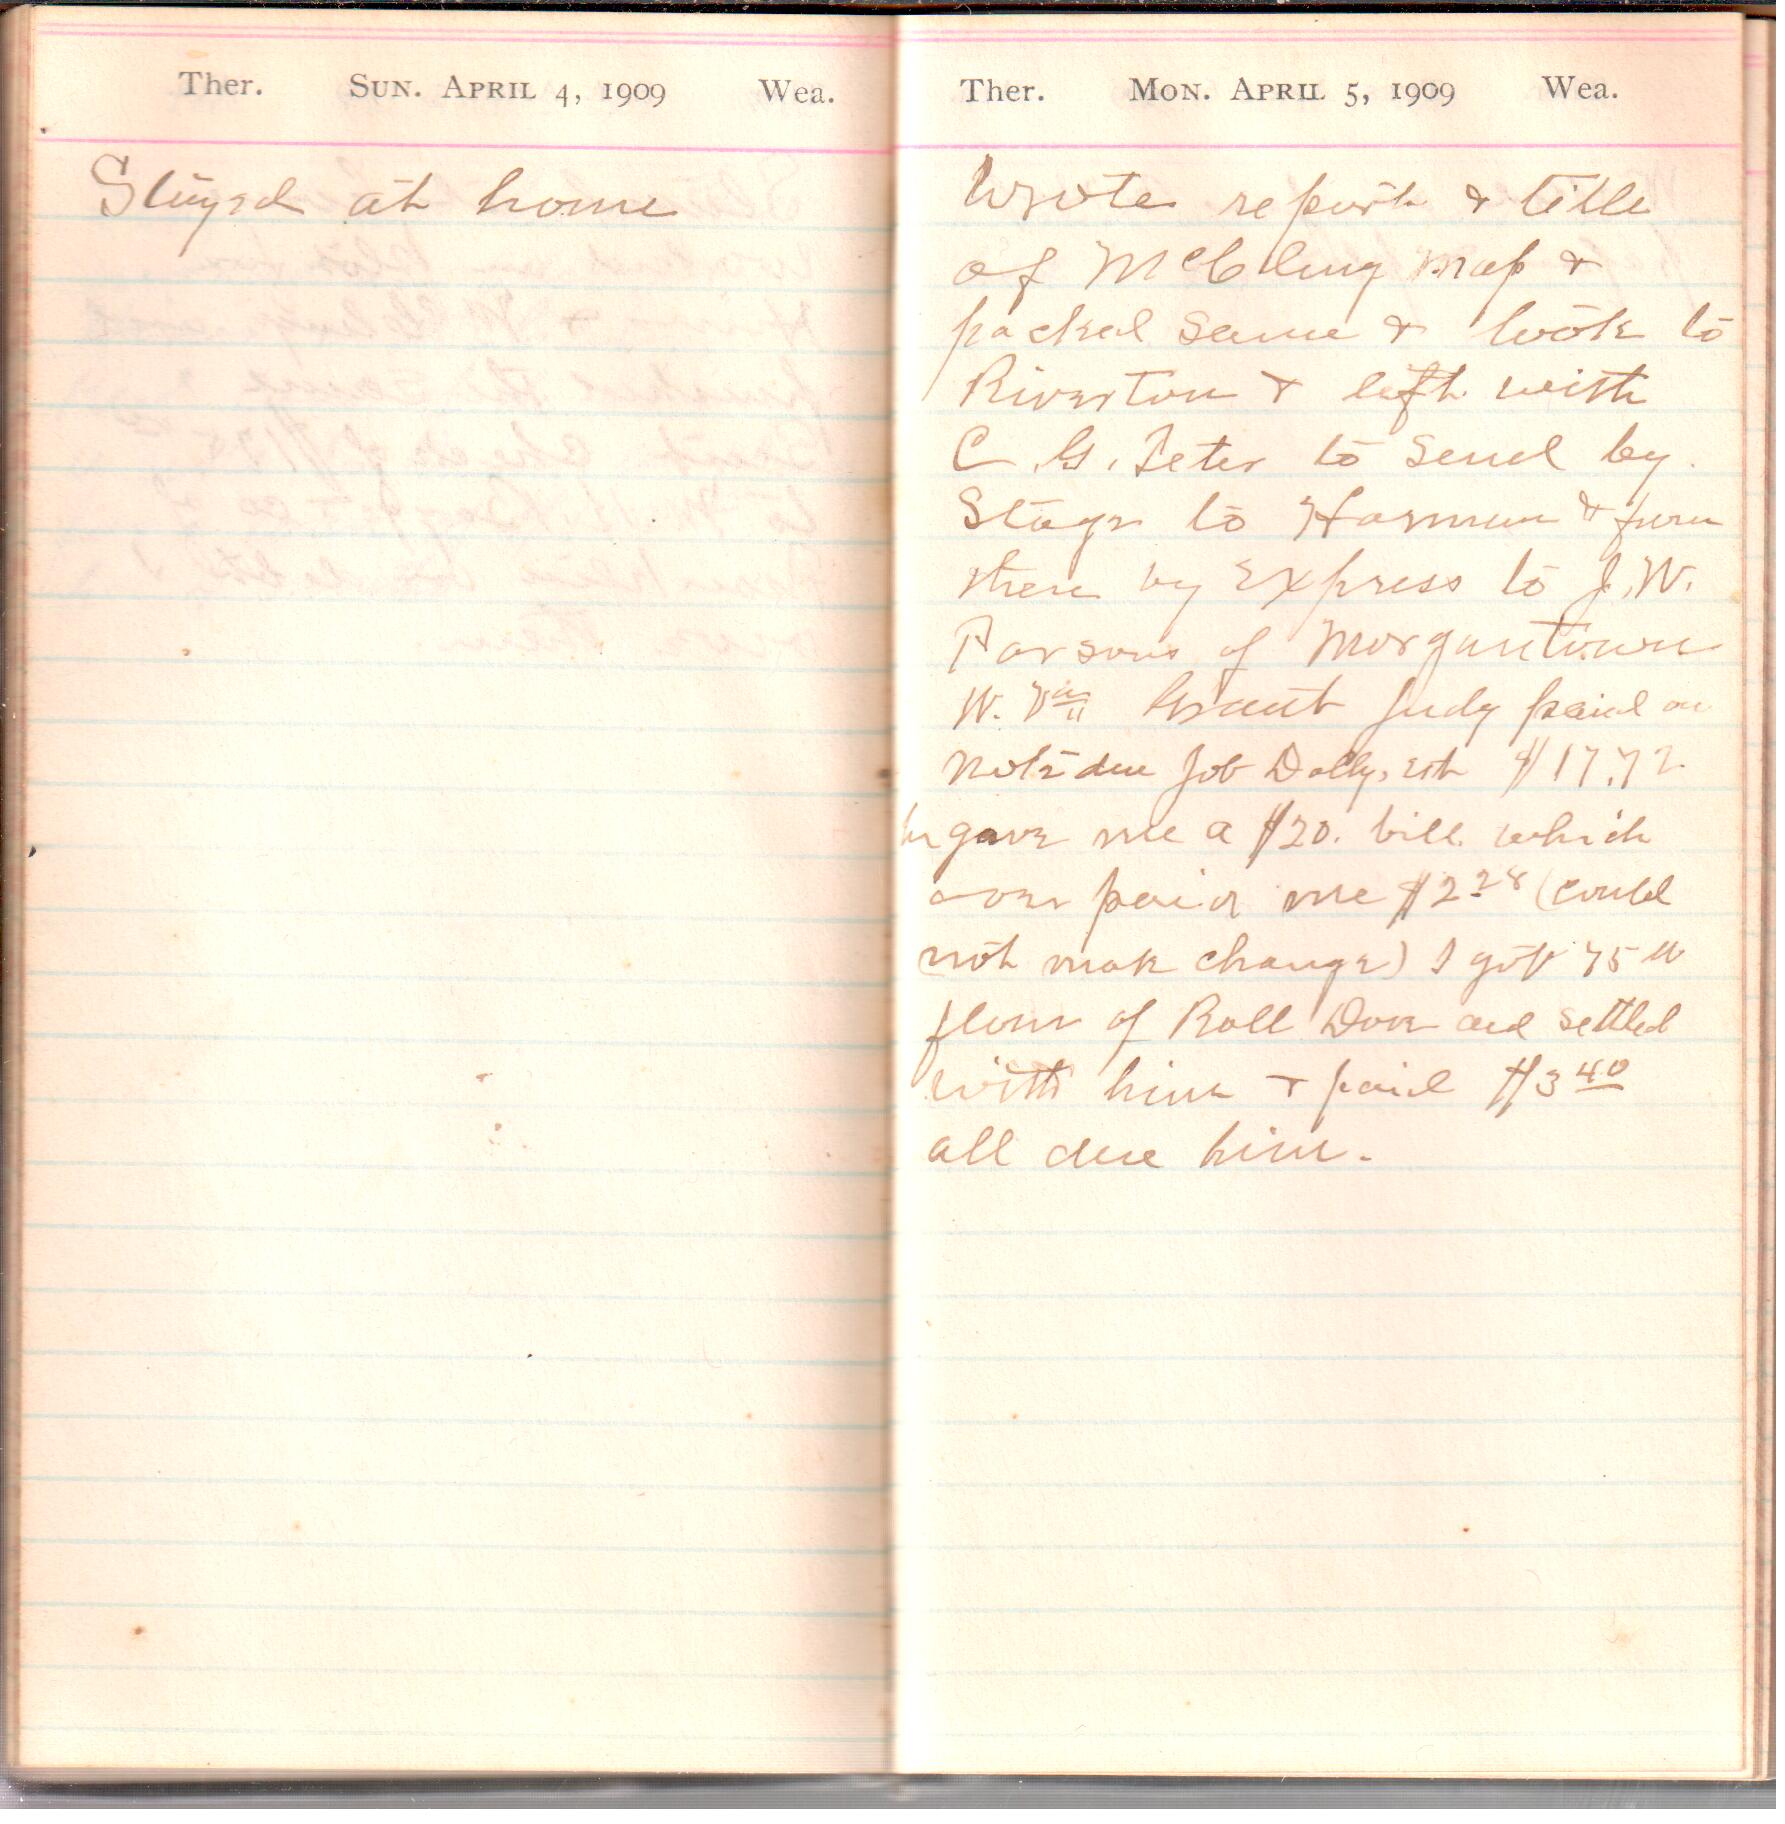 Ther. Sun. April 4, 1909 Wea.
Stayed at home
Ther. Mon. April 5, 1909 Wea.
Wrote report & title
of McClung map &
packed same & took to
Riverton & left with
C. G. Teter to send by
Stage to Harman & from
there by Express to J. W.
Parsons of Morgantown
W. Va Grant Judy paid on
note due Job Dolly, est $17.72
he gave me a $20. bill which
over paid me $2 28 (could
not make change) I got 75 lb
flour of Roll Dove and settled
with him & paid $3 40
all due him.